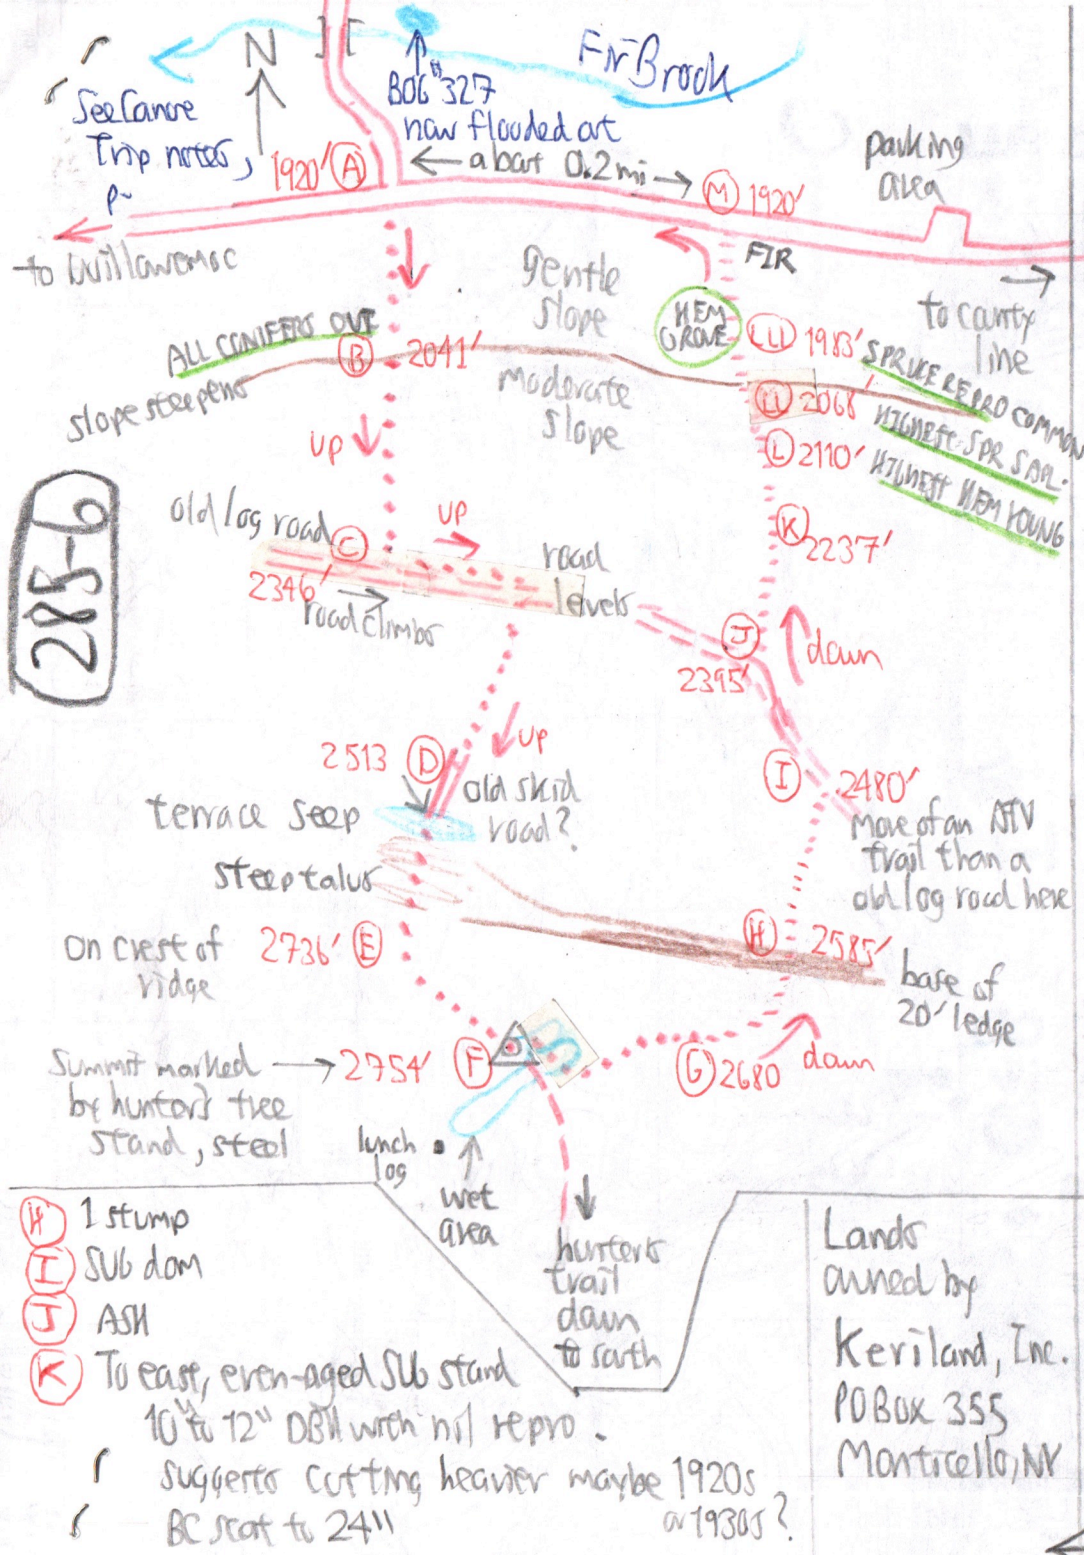 N
] [
Fir Brook
See Canoe
Trip notes,
p~
BOG #327
now flooded out
1920' A
← about 0.2 mi →
M 1920'
parking
area
to Willowemoc
FIR
to county
line
gentle
slope
HEM
GROVE
LLL 1983'
ALL CONIFERS OUT
B 2041'
SPRUCE REPRO COMMON
slope steepens
moderate
slope
LL 2068'
HIGHEST SPR SAPL.
up
L 2110'
HIGHEST HEM YOUNG
285-6
old log road C
up
road
levels
K 2237'
2346'
road climbs
J
2395'
down
2513 D
up
I 2480'
terrace seep
old skid
road?
More of an ATV
trail than a
old log road here
steep talus
on crest of
ridge
2736' E
H 2585'
base of
20' ledge
Summit marked
by hunter's tree
stand, steel
→ 2754' F
G 2680
down
lunch
log
wet
area
hunters
trail
down
to south
H 1 stump
I SUG dom
J ASH
K To east, even-aged SUG stand
10" to 12" DBH with nil repro.
suggests cutting heavier maybe 1920s
or 1930s?
BC scat to 24"
Lands
owned by
Keriland, Inc.
PO BOX 355
Monticello, NY